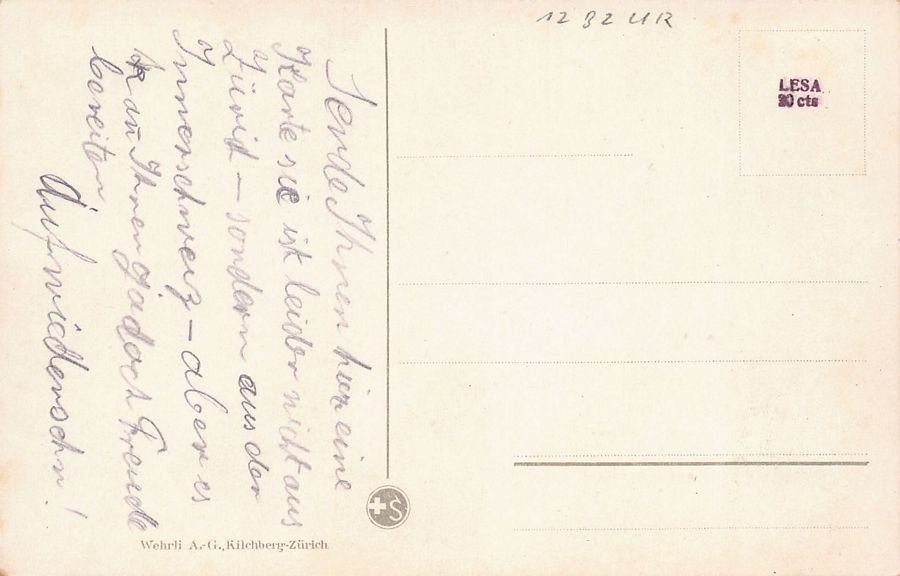 12 92 UR
LESA
20 cts
Sende Ihnen hier eine
Karte sie ist leider nicht aus
Zürich – sondern aus der
Innerschweiz – aber es
kan̄ Ihnen jadoch Freude
bereiten
Aufwiedersehn!
S
Wehrli A.-G., Kilchberg-Zürich